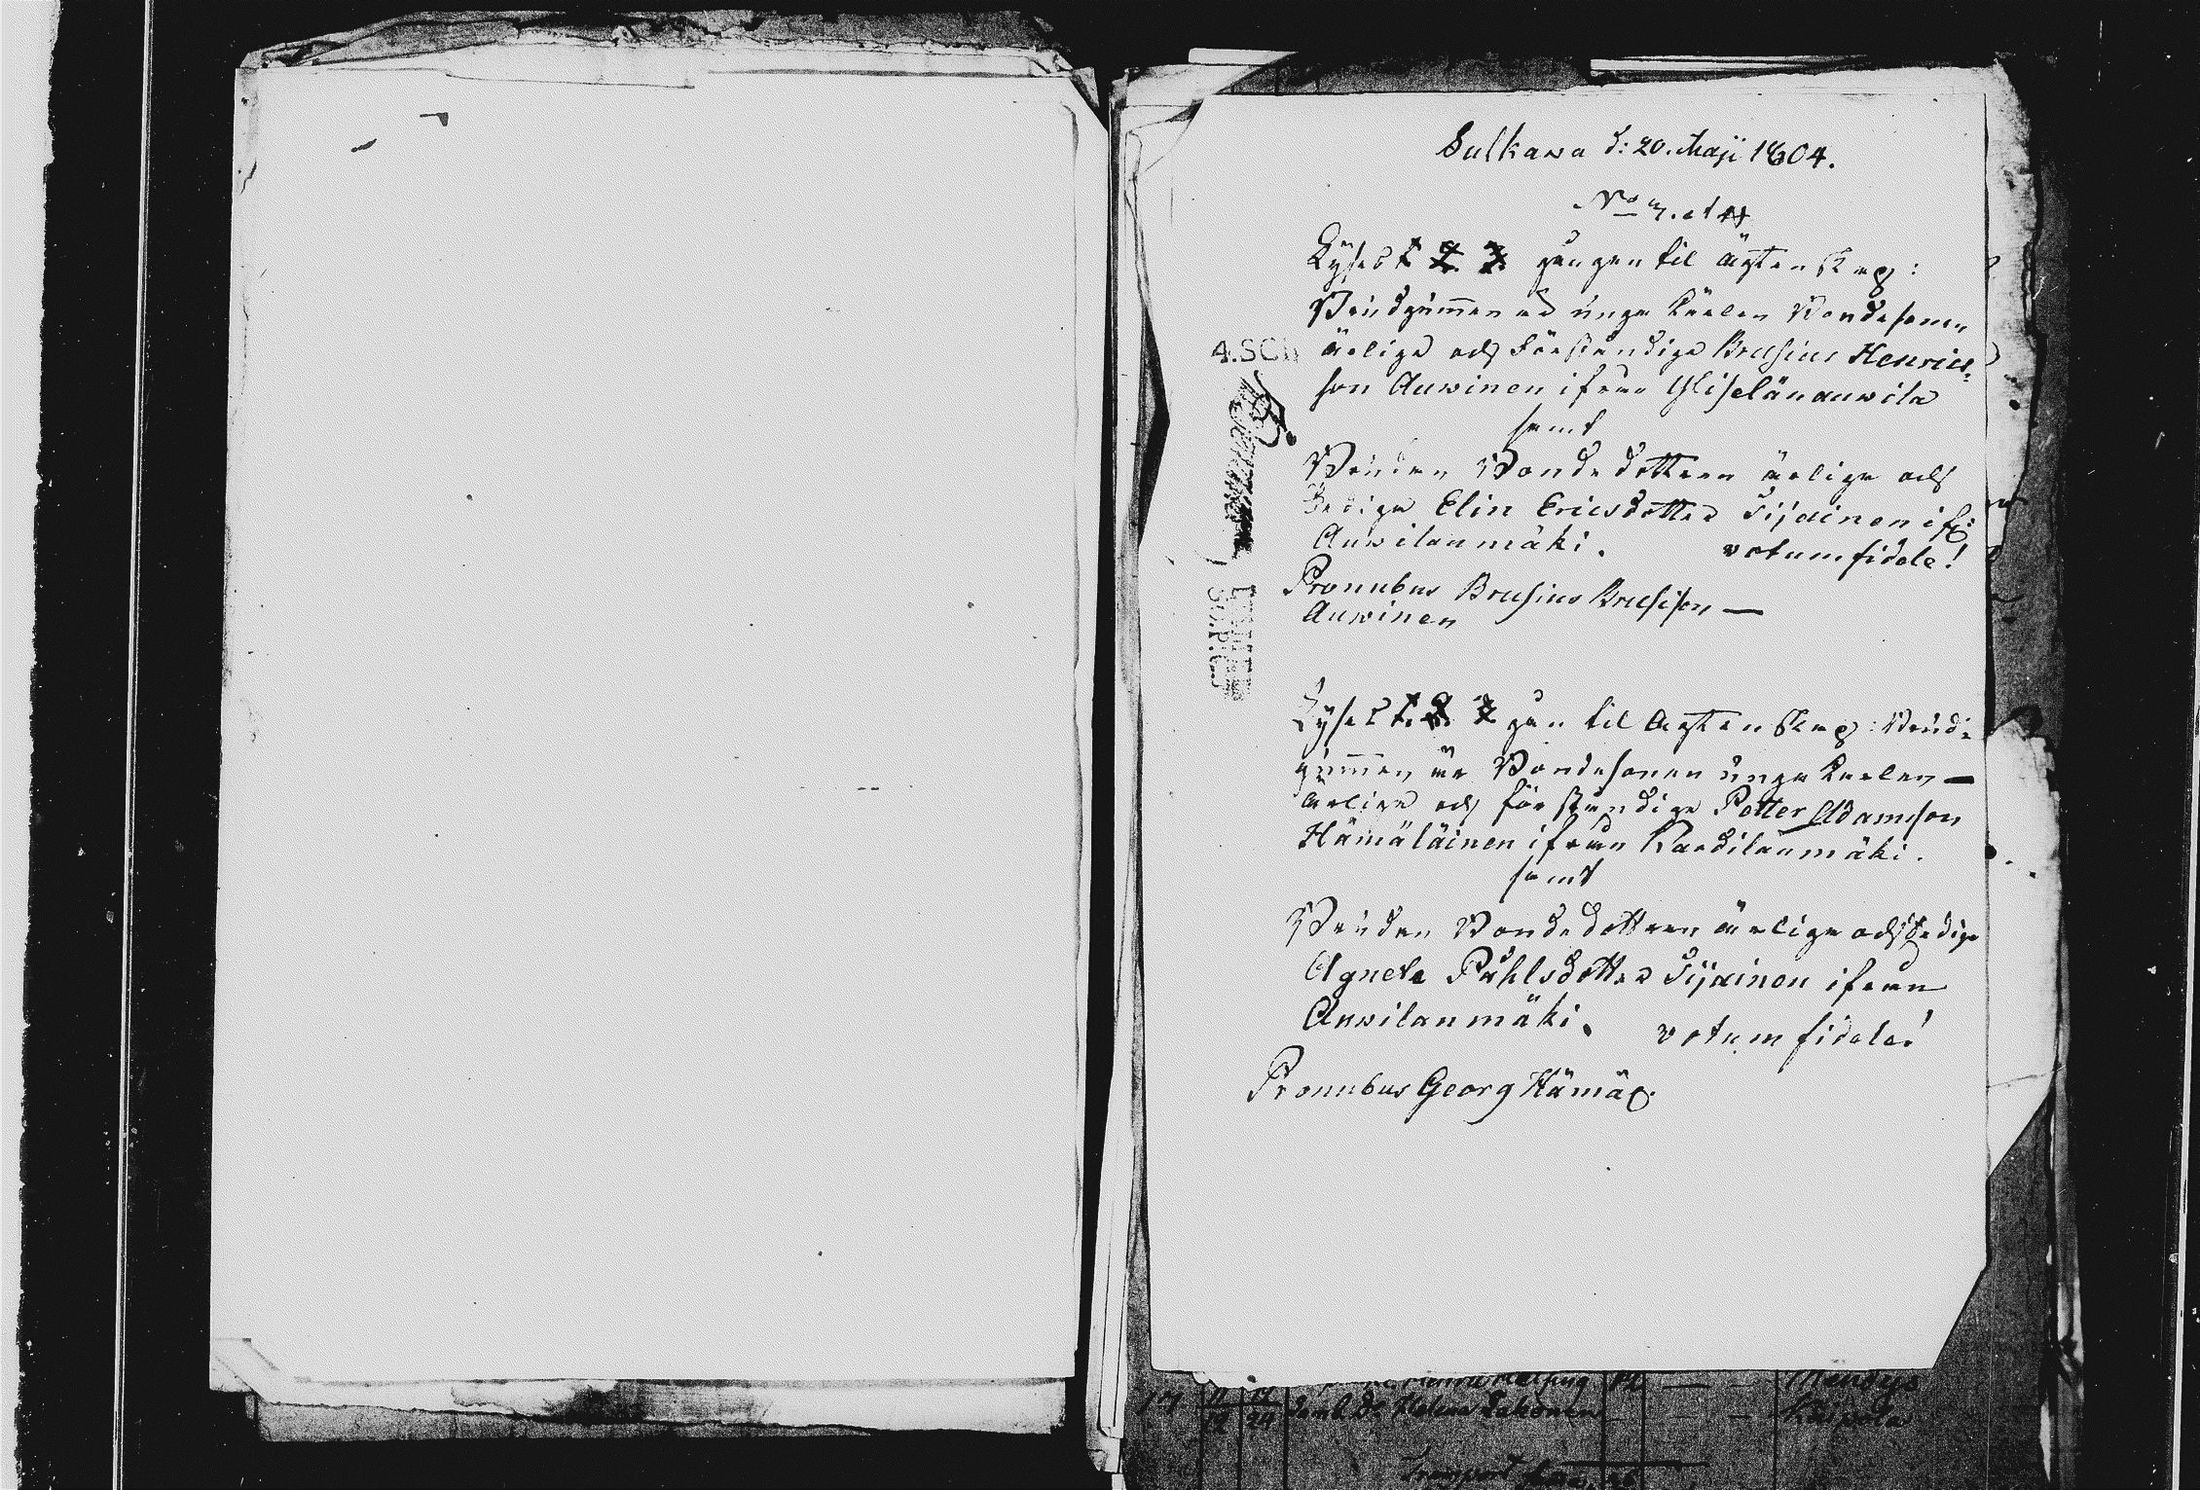 Sulkawa d: 20. Maji 1804.
No 3. et 4
Lyses 1. 2. 3. gången til ägtenskap:
Brudgummen är unga Karlen Bondesonen
ärlige och förståndige Brusius Henrics-
son Auwinen ifrån Ylisenlänauwila
samt
Bruden Bondedottren ärliga och
Sediga Elin Ericsdotter Sijainen ifr:
Auwilanmäki. votum fidele!
Pronubus Brusius Brusisson —
Auwinen
Lyses 1. 2. 3 gån til Ägtenskap: Brud-
gummen är Bondesonen unga Karlen —
ärlige och förståndige Petter Adamsson
Hämäläinen ifrån Kardilanmäki.
samt
Bruden Bondedottren ärliga och Sediga
Agneta Påhlsdotter Sijainen ifrån
Auwilanmäki. votum fidele!
Pronubus Georg Hämäl.
4.SCH
17 24 Helena Kaipola
Transport